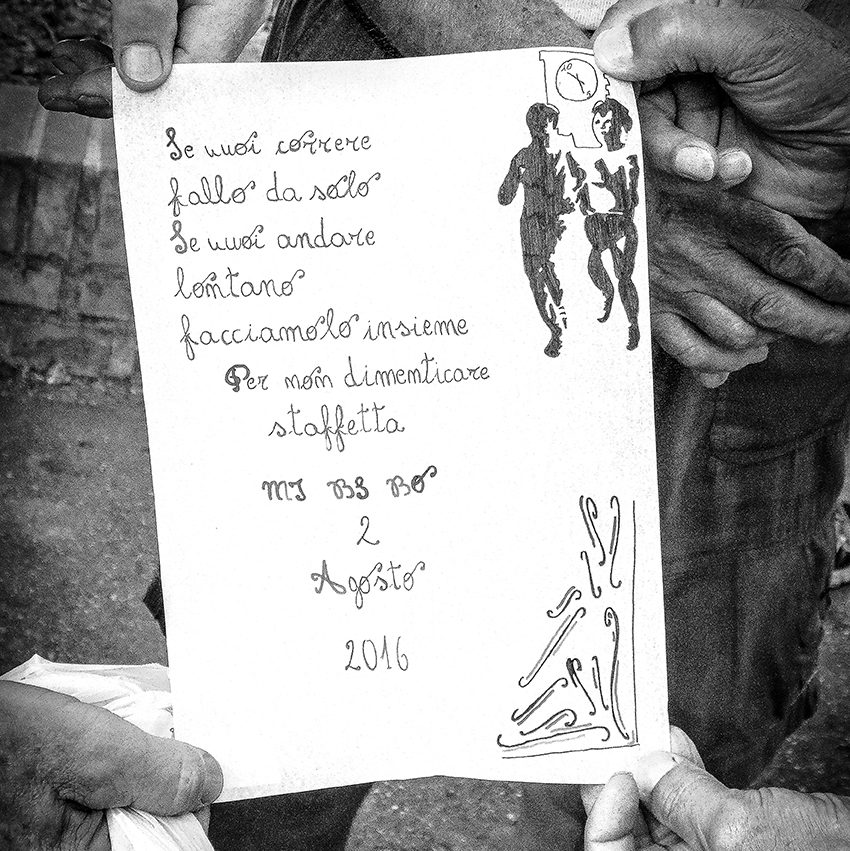 Se vuoi correre
fallo da solo
Se vuoi andare
lontano
facciamolo insieme
Per non dimenticare
staffetta
MI BS BO
2
Agosto
2016